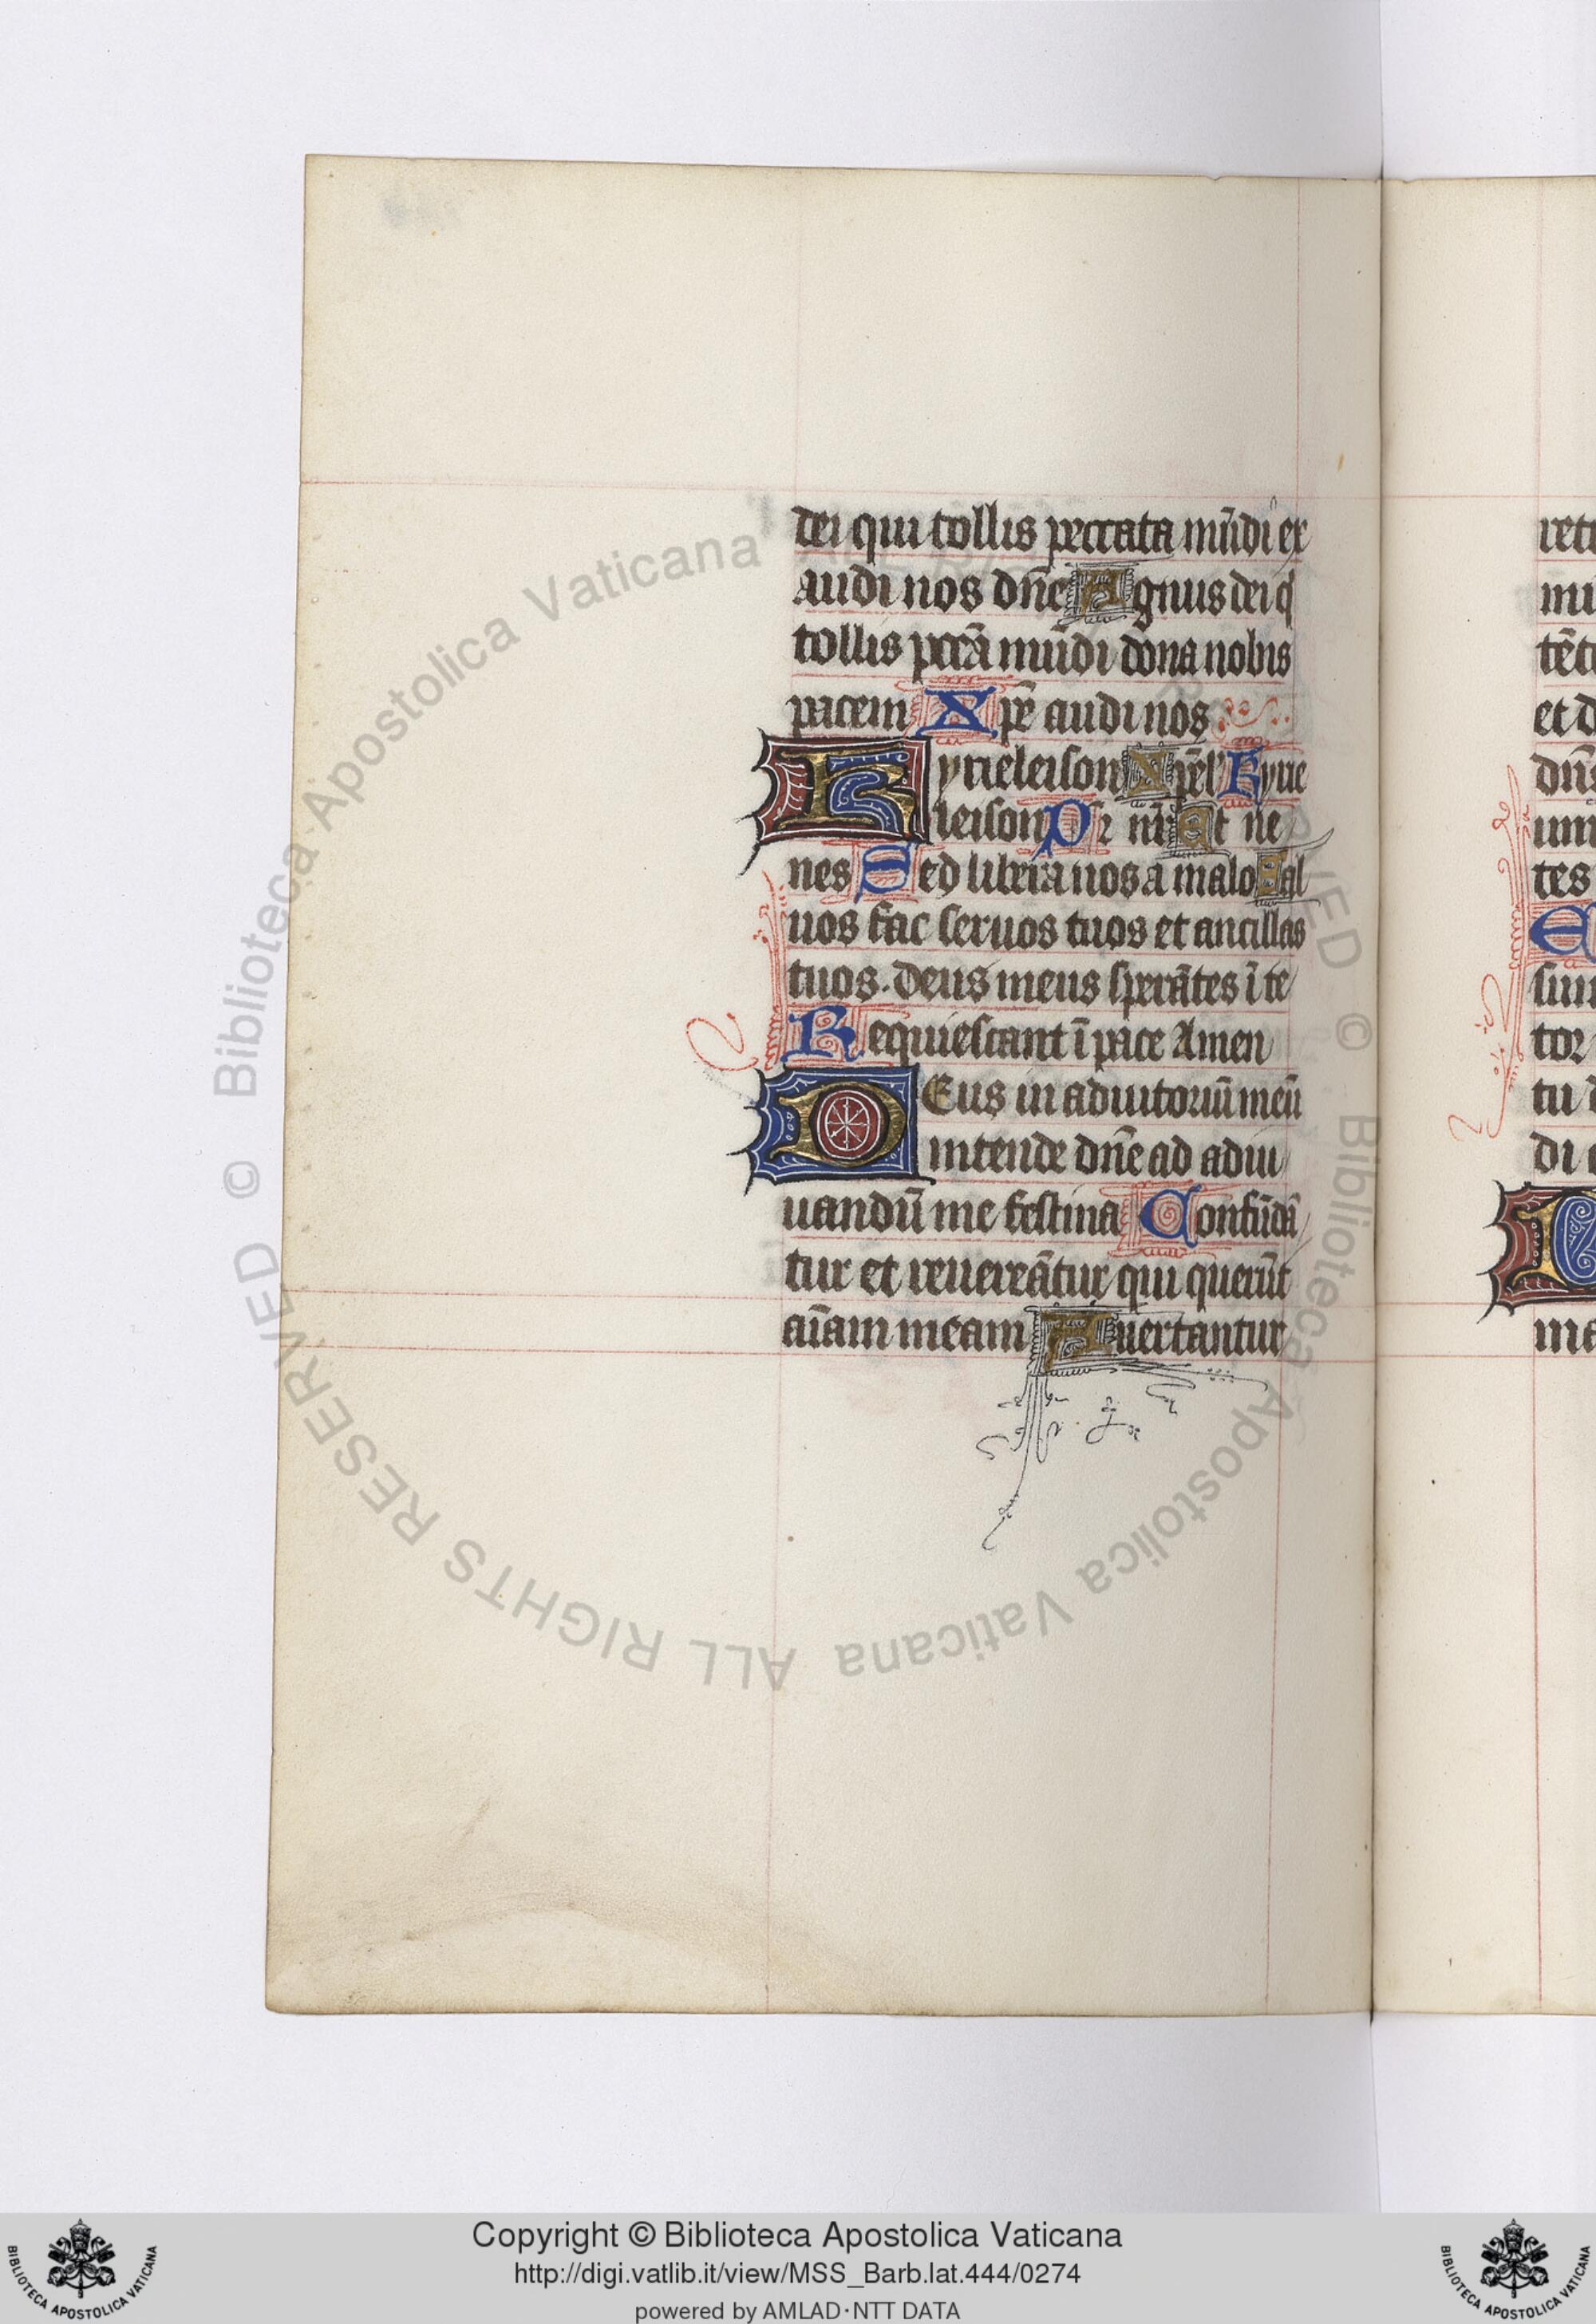 dei qui tollis peccata mūdi ex
audi nos dn̄e Agnus dei q
tollis pccā mūdi dona nobis
pacem Xpē audi nos
Kyrieleison Xpēl' Kyrie
leison Pr nr̄ Et ne
nes Sed libera nos a malo Sal
uos fac seruos tuos et ancillas
tuos. deus meus sperātes ī te
Requiescant ī pace Amen
DEus in adiutoriū meū
intende dn̄e ad adiu
uandū me festina Confūdā
tur et reuereātur qui querūt
aīam meam Auertantur
et d
tes
tor
tu d
di
ma
Biblioteca Apostolica Vaticana
ALL RIGHTS RESERVED © Biblioteca Apostolica Vaticana
© Biblioteca Apostolica Vaticana
Copyright © Biblioteca Apostolica Vaticana
http://digi.vatlib.it/view/MSS_Barb.lat.444/0274
powered by AMLAD·NTT DATA
BIBLIOTECA APOSTOLICA VATICANA
BIBLIOTECA APOSTOLICA VATICANA